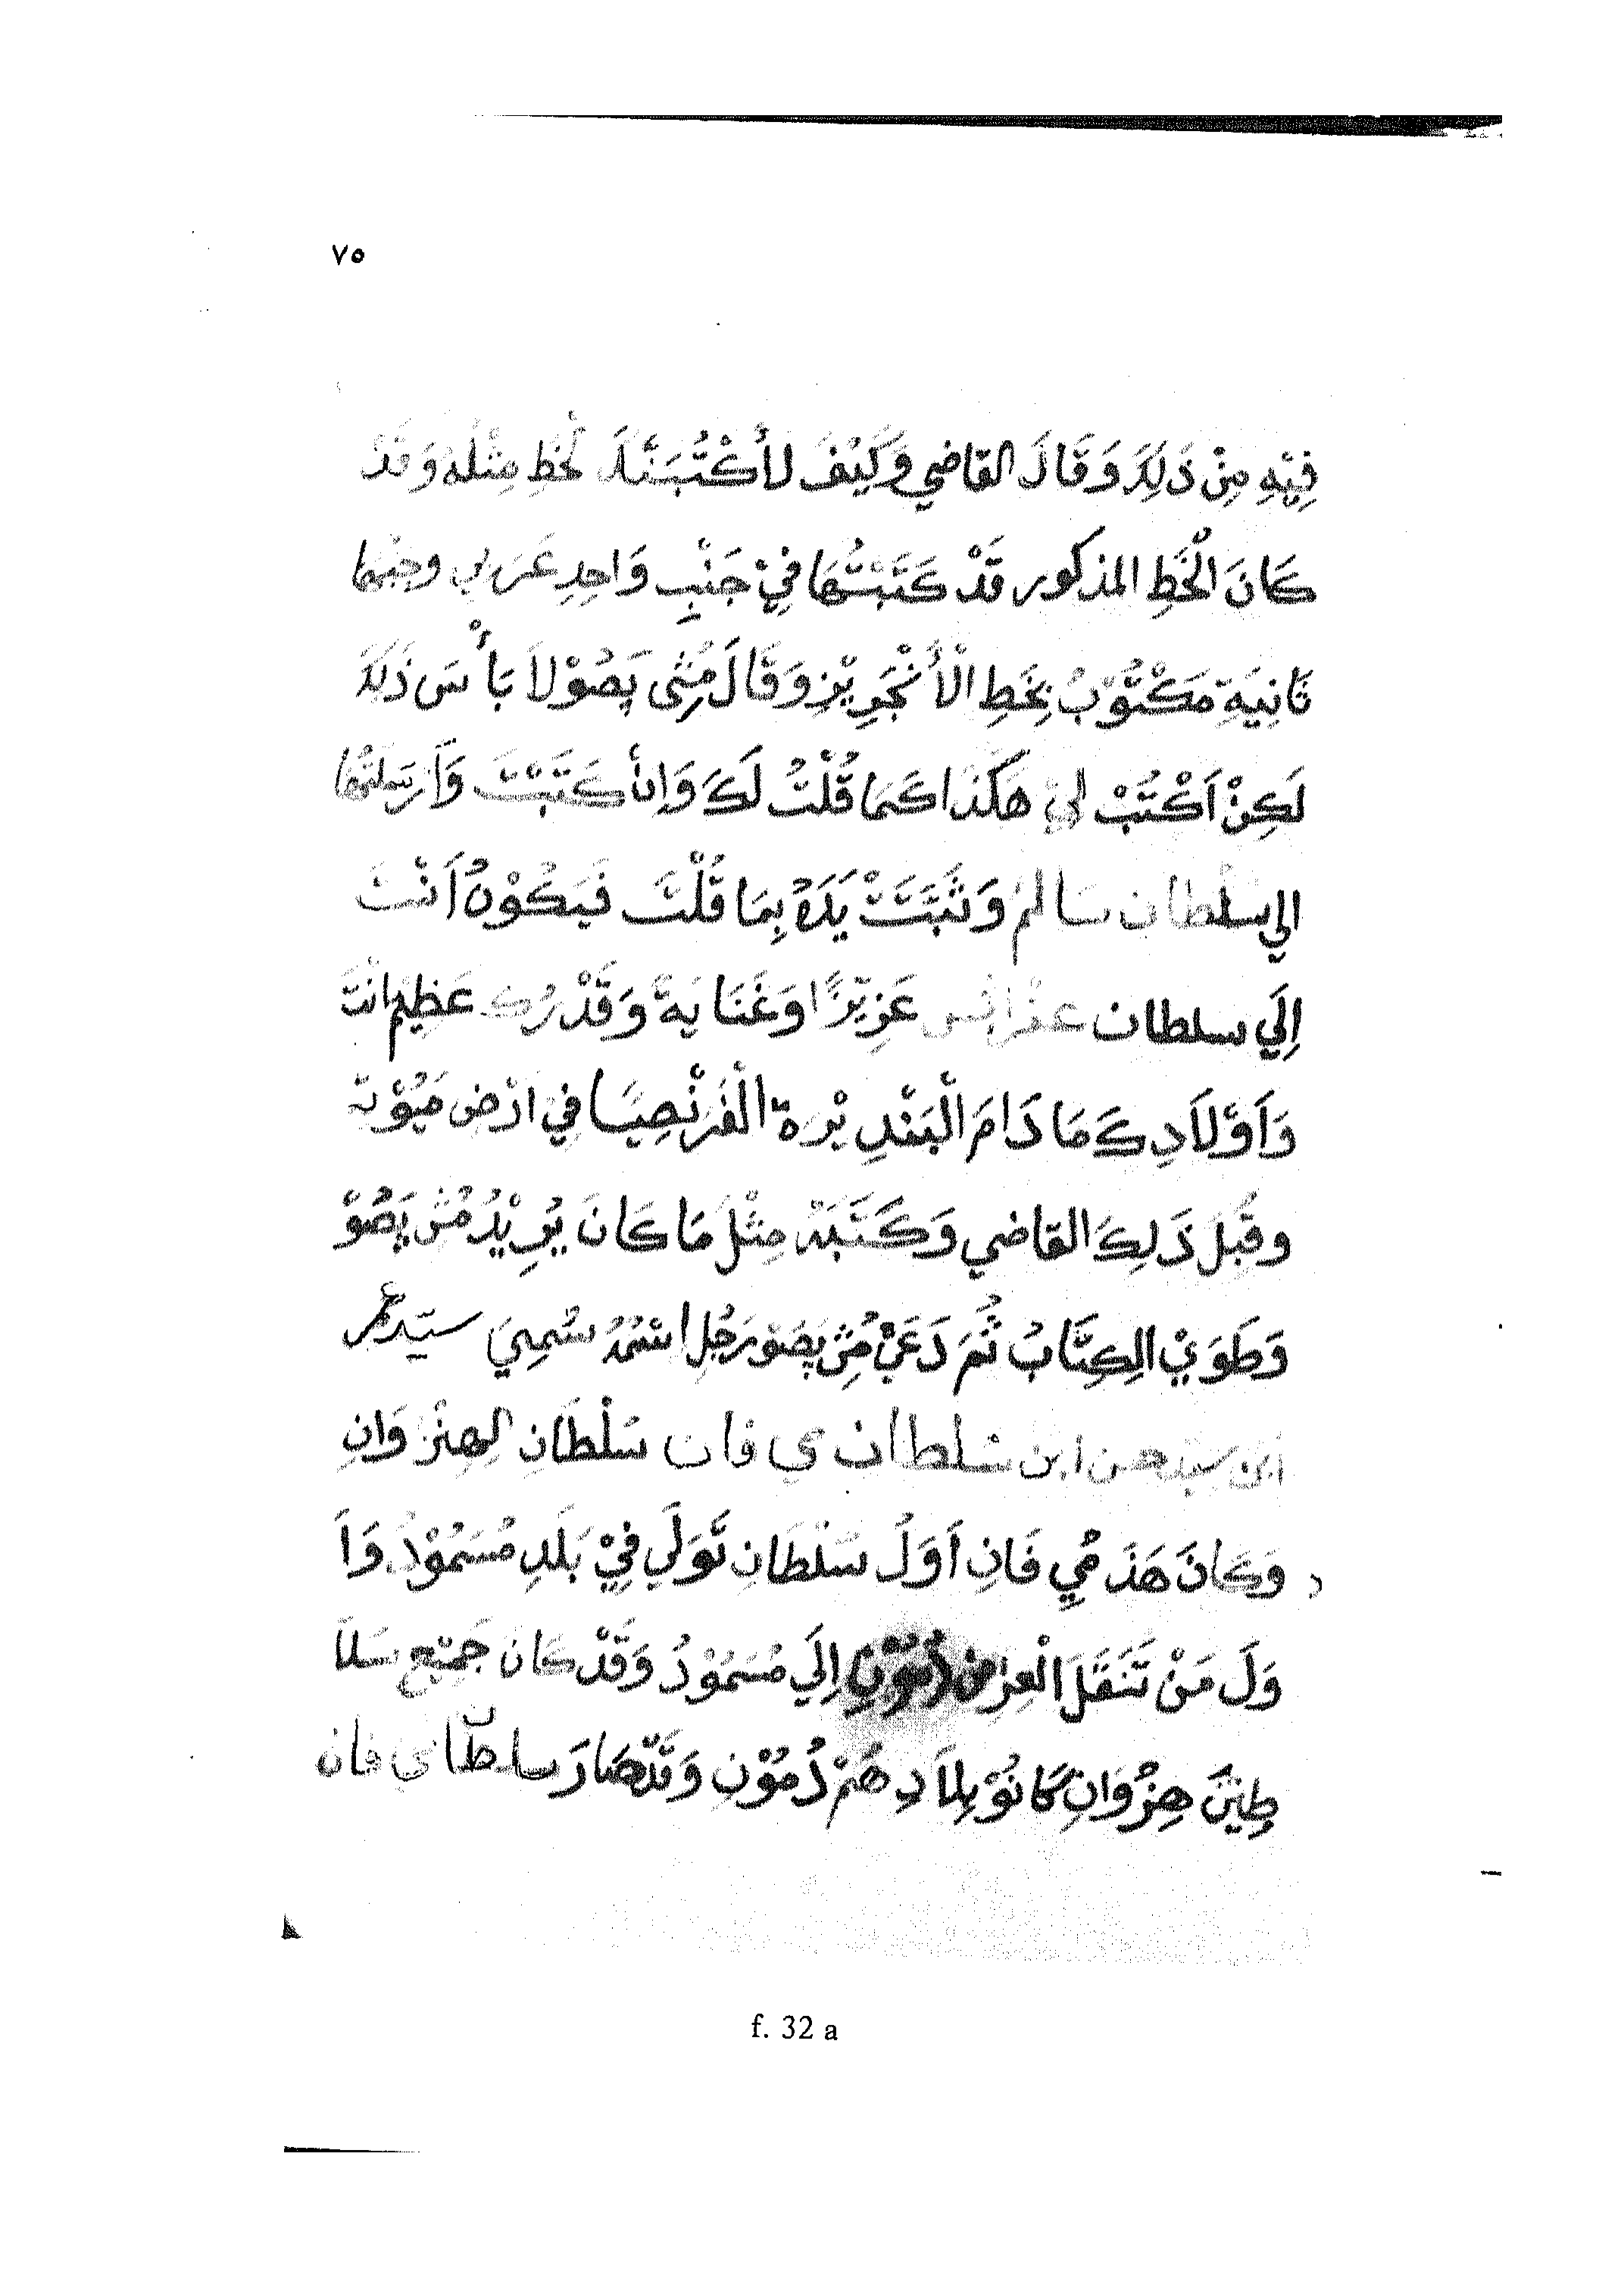 ٧٥
فِيْهِ مِنْ ذَلِكَ وَقَالَ القاضي وَكَيْفَ لأَكْتُبَنَّلَكَ لْخَطِ مِثْلُهُ وَقَدْ
كَانَ الْخَطِ المذكور قَدْ كَتَبْتُهَا فِيْ جَنْبِ وَاحِدِ عَرَبي وجنبها
ثَانِيَةِ مَكْتُوْبُ بِخَطِ الْأَنْجَرِيْزِ وَقَالَ مُشِى پَصُوْ لاَ بَأْسَ ذَلِكَ
لَكِنْ اَكْتُبْ لِيْ هَكَذَا كَمَا قُلْتُ لَكَ وَاِنْ كَتَبْتَ وَاَرْسَلتَهَا
الي سلْطان سَالِمْ وَثَبَتَتْ يَدَهُ بِمَا قُلْتَ فَيَكُوْنُ اَنْتَ
اِلَي سلطان عزيزًا وَغَنَايَةً وَقَدْرُكَ عَظِيْمِ انْتَ
وَاَوْلَادِكَ مَا دَامَ الْبَنْدِيْرَةْ الْفَرَنْصِيَا فِي اَرْض مَيُوْتَة
وقَبِلَ ذَلِكَ القاضي وَكَتَبَهُ مِثْلَ مَا كَانَ يُرِيْدُ مُشِ پَصُوْ
وَطَوَيْ الكِتَابُ ثُمَ دَعَيْ مُشِ پَصَوْ رَجُل اسْمُهُ سُمِيَ سيّد عمر
ابن سيد حسن ابن سلطان ي فان سَلْطَانِ الهِنْزَوَانِ
وَكَانَ هَذَ مُي فَانِ اَوَلُ سَلْطَانِ تَوَلَي فِيْ بَلَدِ مُسَمُوْدُ وَاَ
وَلَ مَنْ تَنَقَلَ الْعِرْض دُمُوْنِ اِلَي مُسَمُوْدُ وَقَدْ كَانَ جَمِيْع سَلَا
طِيْنَ هِنْزُوَانِ كَانُوْ بِلاَدِهُمْ دُمُوْنِ وَقَدْ صَارَ سلطا ي فان
f. 32 a